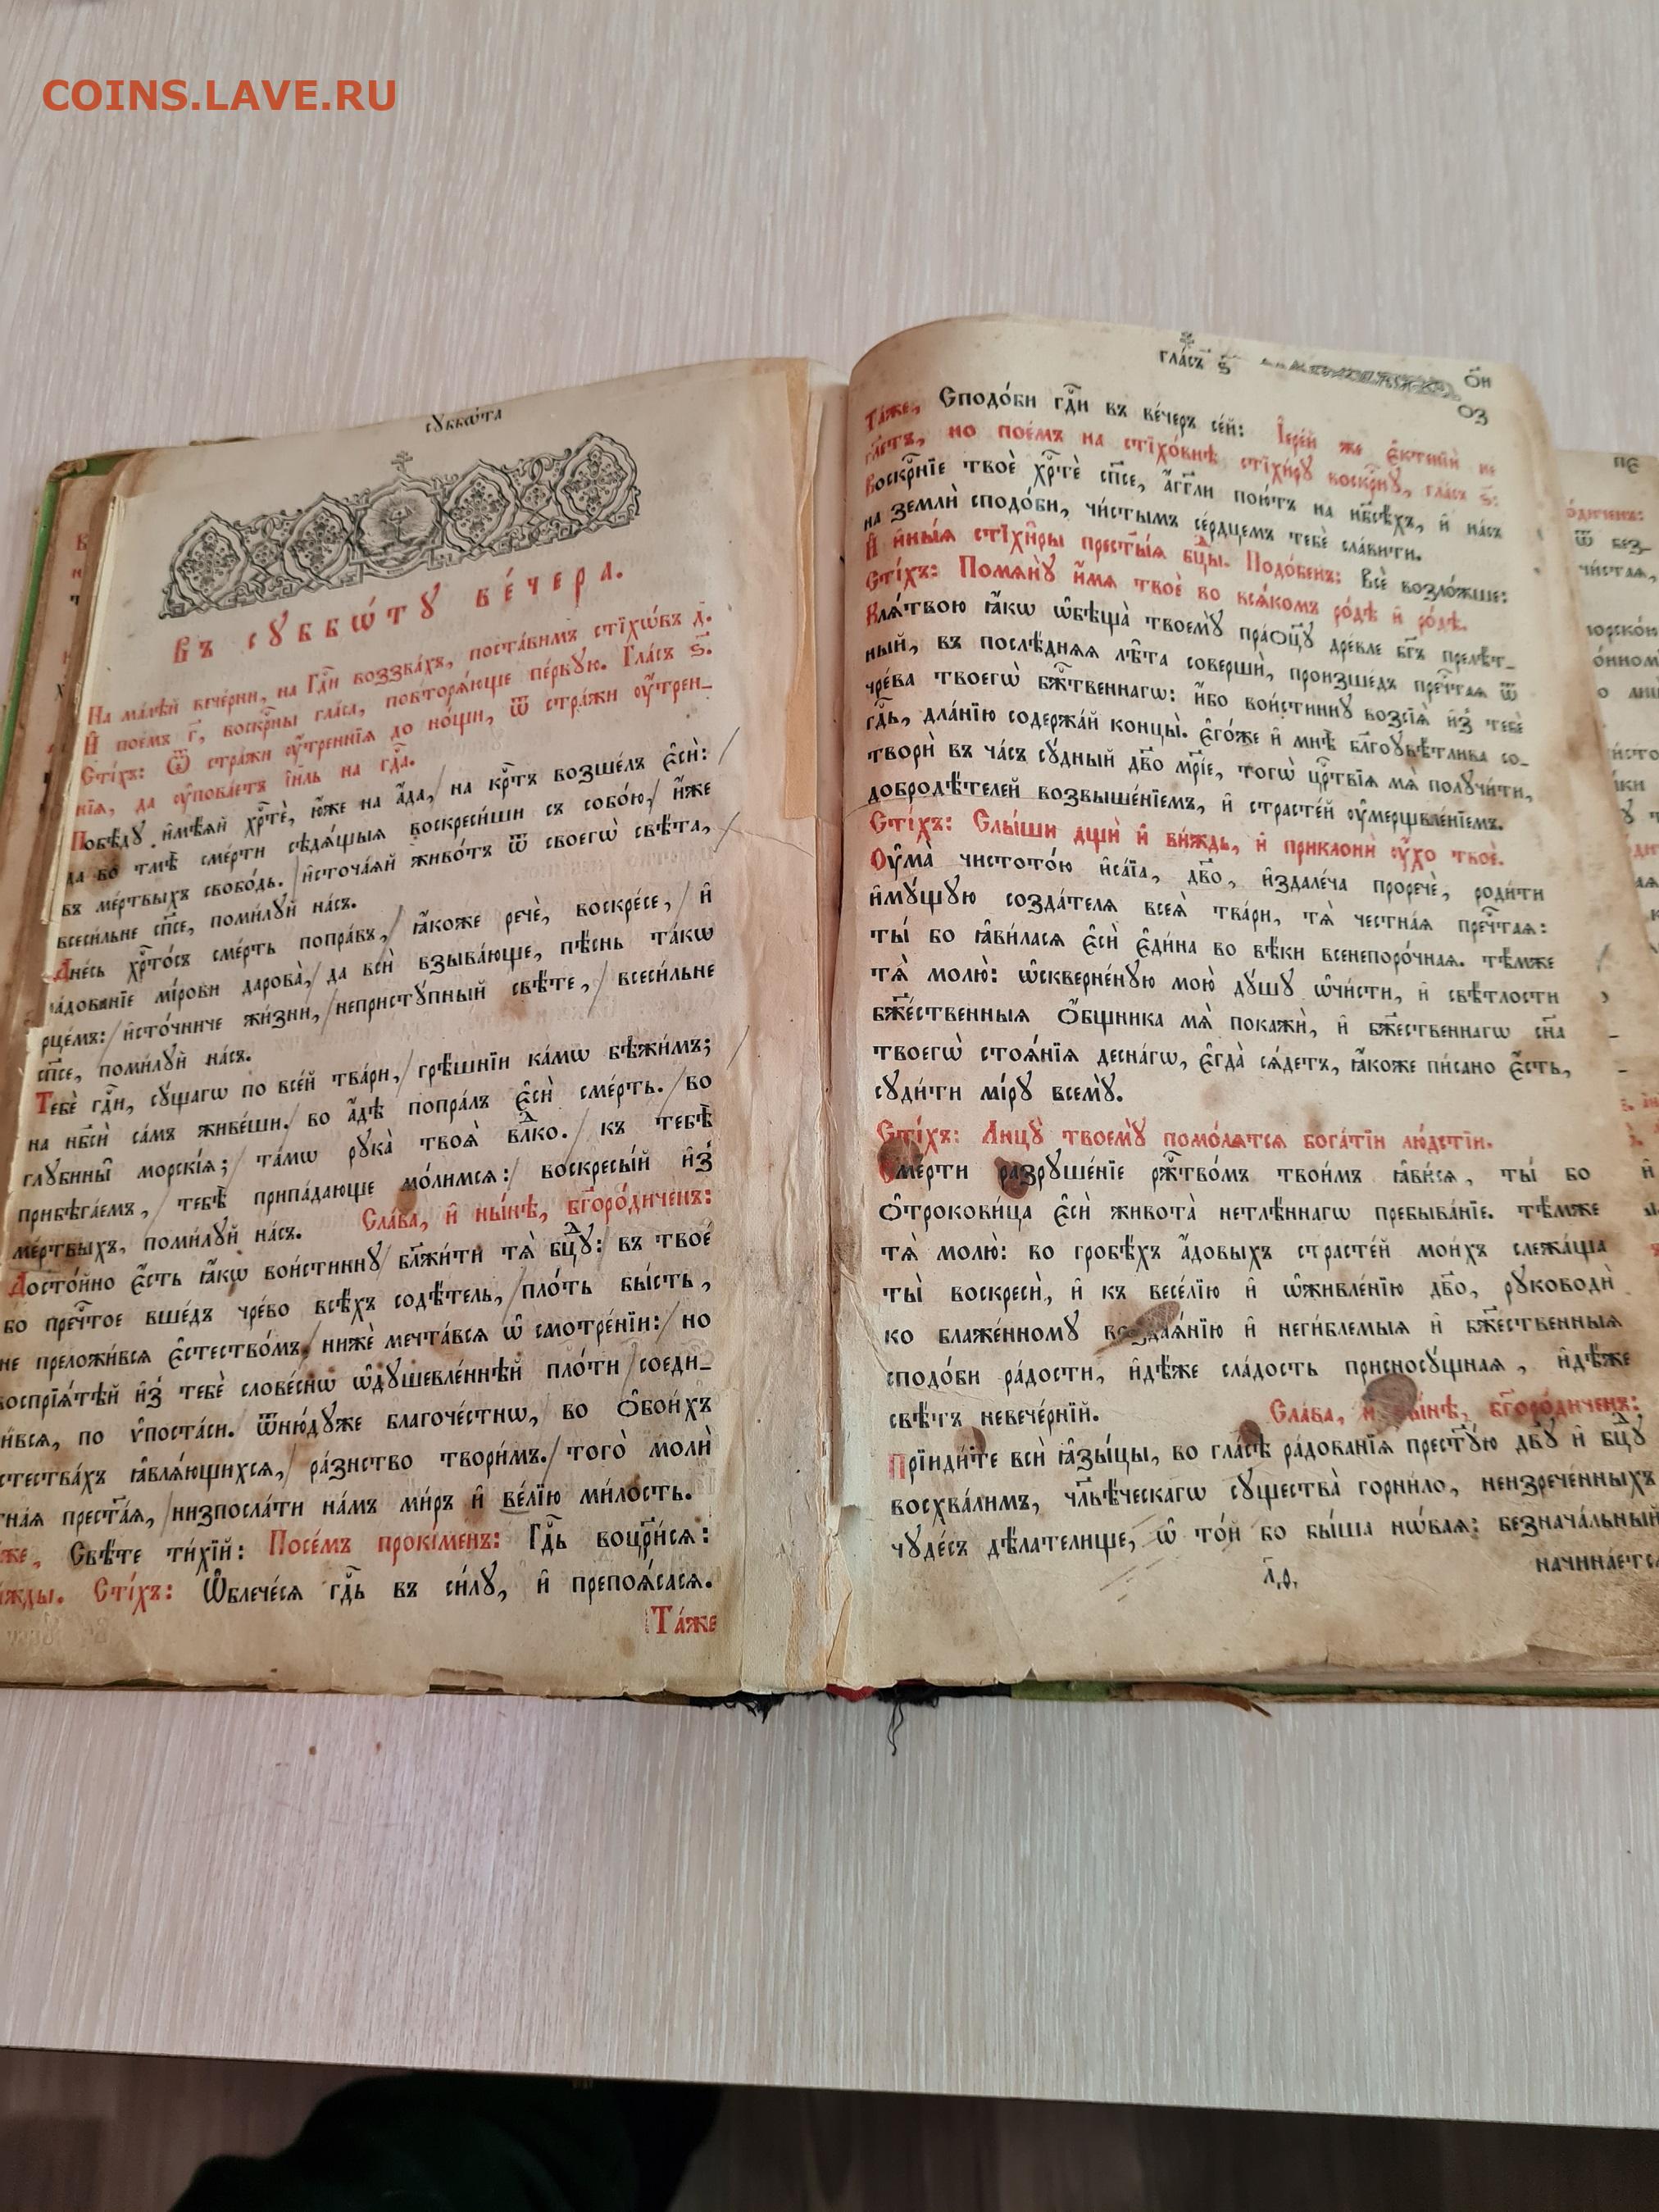 COINS.LAVE.RU
сꙋббѡ́та
въ сꙋббѡ́тꙋ ве́чера.
На ма́лѣй вече́рни, на Гд҃и воззва́хъ, поста́вимъ стїхѡ́въ д҃.
И҆ пое́мъ г҃, воскр҃ны гла́са, повторѧ́юще пе́рвꙋю. Гла́съ ѕ҃.
Сті́хъ: Ѿ стра́жи ᲂу҆́треннїѧ до но́щи, ѿ стра́жи ᲂу҆́трен_
нїѧ, да ᲂу҆пова́етъ і҆и҃ль на гд҃а.
Побѣ́дꙋ и҆мѣ́ѧй хрⷭ҇тѐ, ю҆́же на а҆́да, / на крⷭ҇тъ возше́лъ є҆сѝ: /
да во тмѣ̀ сме́рти сѣдѧ́щыѧ воскреси́ши съ собо́ю, / и҆́же
въ ме́ртвыхъ свобо́дь. / и҆сточа́ѧй живо́тъ ѿ своегѡ̀ свѣ́та, /
всеси́льне сп҃се, поми́лꙋй на́съ.
Дне́сь хрⷭ҇то́съ сме́рть попра́въ, / ꙗ҆́коже речѐ, воскре́се, / и҆
ра́дованїе мі́рови дарова̀, / да всѝ взыва́юще, пѣ́снь та́кѡ
рце́мъ: / и҆сто́чниче жи́зни, / непристꙋ́пный свѣ́те, / всеси́льне
сп҃се, поми́лꙋй на́съ.
Тебѐ гд҃и, сꙋ́щаго по все́й тва́ри, / грѣ́шнїи ка́мѡ бѣжи́мъ;
на нб҃сѝ са́мъ живе́ши. / во а҆́дѣ попра́лъ є҆сѝ сме́рть. / во
глꙋбины̑ морскі́ѧ; / та́мѡ рꙋка̀ твоѧ̀ влⷣко. / къ тебѣ̀
прибѣга́емъ, / тебѣ̀ припа́дающе мо́лимсѧ: / воскресы́й и҆з̾
ме́ртвыхъ, поми́лꙋй на́съ. Сла́ва, и҆ ны́нѣ, бг҃оро́диченъ:
Досто́йно є҆́сть ꙗ҆́кѡ вои́стиннꙋ / бл҃жи́ти тѧ̀ бцⷣꙋ: / въ твое́
бо преч҃тое вше́дъ чре́во всѣ́хъ содѣ́тель, / пло́ть бы́сть,
не преложи́всѧ є҆стество́мъ, / нижѐ мечта́всѧ ѡ҆ смотре́нїи: / но
воспрїѧ́тѣй и҆з̾ тебѐ слове́снѡ ѡ҆дꙋшевле́ннѣй пло́ти / соеди_
ни́всѧ, по ѵ҆поста́си. ѿню́дꙋже благоче́стнѡ, / во ѻ҆бои́хъ
естества́хъ ꙗ҆влѧ́ющихсѧ, / ра́знство твори́мъ. / того̀ молѝ
честна́ѧ прест҃а́ѧ, / низпосла́ти на́мъ ми́ръ и҆ ве́лїю ми́лость.
Та́же, Свѣ́те ти́хїй: Посе́мъ прокі́менъ: Гд҃ь воцр҃и́сѧ:
два́жды. Сті́хъ: Ѡ҆блече́сѧ гд҃ь въ си́лꙋ, и҆ препоѧ́сасѧ.
Та́же
гла́съ ѕ҃ о҃и
оз
Та́же, Сподо́би гд҃и въ ве́черъ се́й: І҆ере́й же є҆ктенїѝ не
гл҃етъ, но пое́мъ на стїхо́внѣ стїхи́рꙋ воскр҃нꙋ, гла́съ ѕ҃:
Воскр҃нїе твоѐ хрⷭ҇тѐ сп҃се, а҆́гг҃ли пою́тъ на нб҃сѣ́хъ, и҆ на́съ
на землѝ сподо́би, чи́стымъ се́рдцемъ тебѐ сла́вити.
И҆ и҆ны́ѧ стїхи̑ры прест҃ы́ѧ бцⷣы. Подо́бенъ: Всѐ возло́жше:
Сті́хъ: Помѧнꙋ̀ и҆́мѧ твоѐ во всѧ́комъ ро́дѣ и҆ ро́дѣ.
Клѧ́твою ꙗ҆́кѡ ѡ҆бѣща̀ твоемꙋ̀ пра́ѻц҃ꙋ дре́вле бг҃ъ прелѣт_
ный, въ послѣ́днѧѧ лѣ́та совершѝ, произше́дъ преч҃таѧ ѿ
чре́ва твоегѡ̀ бжⷭ҇твеннагѡ: и҆́бо вои́стиннꙋ возсїѧ̀ и҆з̾ тебѐ
гд҃ь, дла́нїю содержа́й концы̀. є҆го́же и҆ мнѣ̀ бл҃гоꙋвѣ́тлива со_
творѝ въ ча́съ сꙋ́дный дв҃о мр҃і́е, тогѡ̀ црⷭ҇твїѧ мѧ̀ полꙋчи́ти,
добродѣ́телей возвыше́нїемъ, и҆ страсте́й ᲂу҆мерщвле́нїемъ.
Сті́хъ: Слы́ши дщѝ и҆ ви́ждь, и҆ приклонѝ ᲂу҆́хо твоѐ.
Оу҆ма̀ чистото́ю и҆са́їа, дв҃о, и҆здале́ча проречѐ, роди́ти
и҆мꙋ́щꙋю созда́телѧ всеѧ̀ тва́ри, тѧ̀ честна́ѧ преч҃таѧ:
ты́ бо ꙗ҆ви́ласѧ є҆сѝ є҆ди́на во вѣ́ки всенепоро́чнаѧ. тѣ́мже
тѧ̀ молю̀: ѡ҆скверне́нꙋю мою̀ дꙋ́шꙋ ѡ҆чи́сти, и҆ свѣ́тлости
бж҃е́ственныѧ ѻ҆́бщника мѧ̀ покажѝ, и҆ бж҃е́ственнагѡ сн҃а
твоегѡ̀ стоѧ́нїѧ десна́гѡ, є҆гда̀ сѧ́детъ, ꙗ҆́коже пи́сано є҆́сть,
сꙋди́ти мі́рꙋ всемꙋ̀.
Сті́хъ: Лицꙋ̀ твоемꙋ̀ помо́лѧтсѧ бога́тїи лю́дстїи.
Сме́рти разрꙋше́нїе рж҃тво́мъ твои́мъ ꙗ҆ви́сѧ, ты́ бо
ѻ҆трокови́ца є҆сѝ живота̀ нетлѣ́ннагѡ пребыва́нїе. тѣ́мже
тѧ̀ молю̀: во гробѣ́хъ а҆́довыхъ страсте́й мои́хъ слежа́ща
ты̀ воскресѝ, и҆ къ весе́лїю и҆ ѡ҆живле́нїю дв҃о, рꙋководѝ
ко блаже́нномꙋ воздаѧ́нїю и҆ неги́блемыѧ и҆ бж҃е́ственныѧ
сподо́би ра́дости, и҆дѣ́же сла́дость присносꙋ́щнаѧ, и҆дѣ́же
свѣ́тъ невече́рнїй. Сла́ва, и҆ ны́нѣ, бг҃оро́диченъ:
Прїиди́те всѝ ꙗ҆зы́цы, во гла́сѣ ра́дованїѧ прест҃ꙋ́ю дв҃ꙋ и҆ бцⷣꙋ
восхва́лимъ, чл҃вѣ́ческагѡ сꙋщества̀ горни́ло, неизрече́нныхъ
чꙋде́съ дѣ́лателище, ѡ҆ то́й бо бы́ша нѡ́ваѧ: безнача́льный
л҃.ѳ.
начина́етсѧ
пе
ѿ без_
чи́стаѧ,